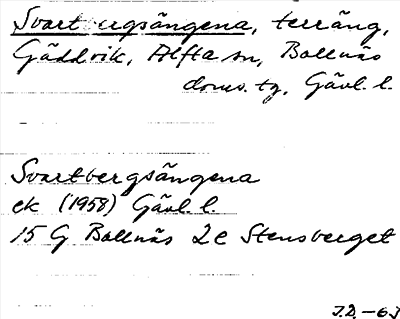 Svartbergsängena, terräng,
Gäddvik, Alfta sn, Bollnäs
doms. tg, Gävl. l.
Svartbergsängena
ek (1958) Gävl. l.
15 G Bollnäs 2 c Stensberget
J.D. -63